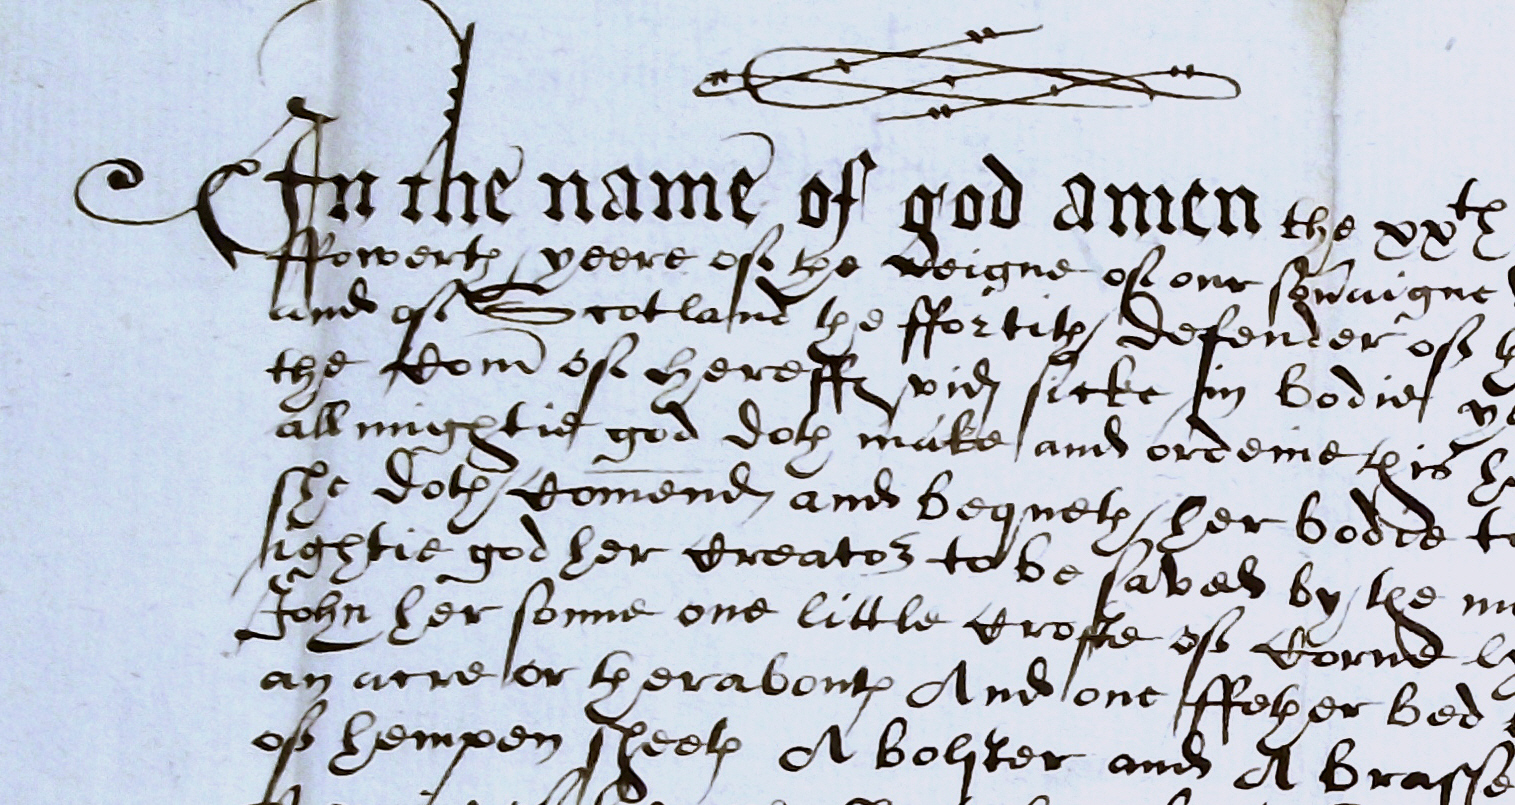 In the name of god amen the xxth
ffowerth yeere of the Reigne of our sov'aigne
and of Scotland the ffortith defender of
the Com of hereff vid sicke in bodie
allmightie god doth make and ordeine this
she doth Comend and bequeth her bodie to
ightie god her Creator to be saved by the
John her sonne one little Crofte of Corne
an acre or therabout And one ffether bed
of hempen sheet A bolster and A brasse